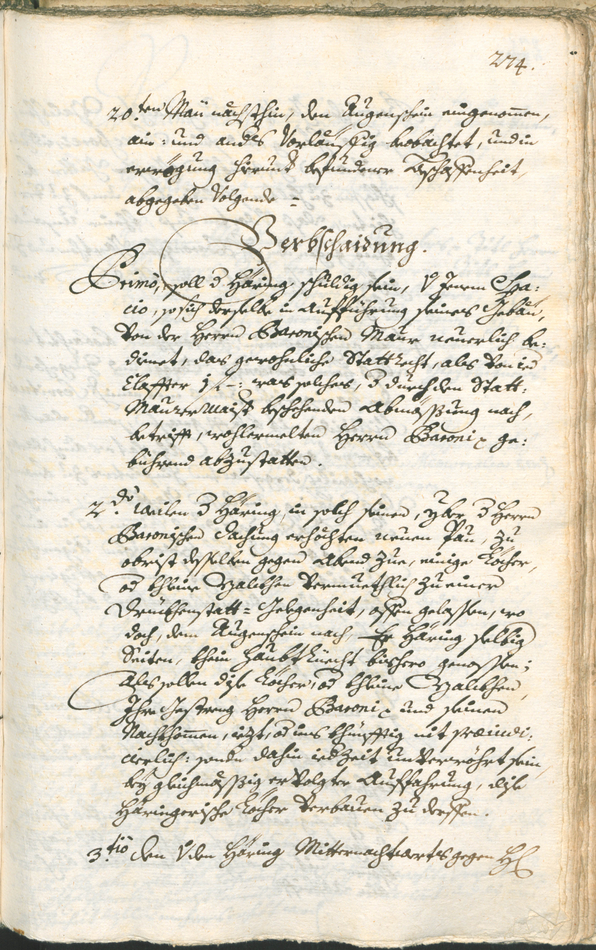 274.
20.ten Maii nächsthin, den Augenschein eingenommen,
ain: und anders vorläuffig beobachtet, und in
erwögung hierunt befundener Beschaffenheit,
abgegeben volgende =
Verbschaidung.
Primò, soll d Häring schuldig sein, V Jenem Spa:
cio, so sich derselbe in Aufführung seines Gebäu,
von der Herrn Baronischen Maur neuerlich be:
dienet, das gewohnliche Stattrecht, als von ied
Claffter 1 f –: was solches, d durch den Statt:
Maurer Maister beschehenden Abmössung nach,
betrifft, wohlermelten Herrn Baroni p ge:
bührend abzustatten.
2.do Weilen d Häring in solch seinen, yber d Herrn
Baronischen Dachung erhöchten neuen Päu, zu
obrist desselben gegen Abend zue, einige Löcher,
od khleine Palckhen vermuethlich zu einer
Drückhenstatt = Gelegenheit, offen gelassen, wo
doch, dem Augenschein nach, Er Häring selbig
Seiten, khein haubt Liecht bishero genossen;
Als sollen dise Löcher, od khleine Palckhen,
Ihro Gestreng Herrn Baroni p und seinen
Nachkhommen, iezt, od ins khünfftig nit praeiudi:
cierlich: sonder dahin iedzeit unverwöhrt sein,
bey gleichmässig ervolgter Aufffahrung, dise
Häringerische Löcher verbauen zu derffen.
3.tio den V den Häring Mitternachtwerts gegen H